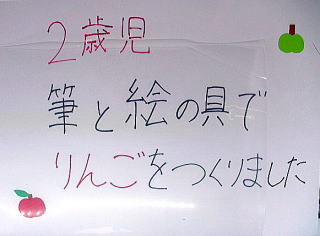 2歳児
筆と絵の具で
りんごをつくりました